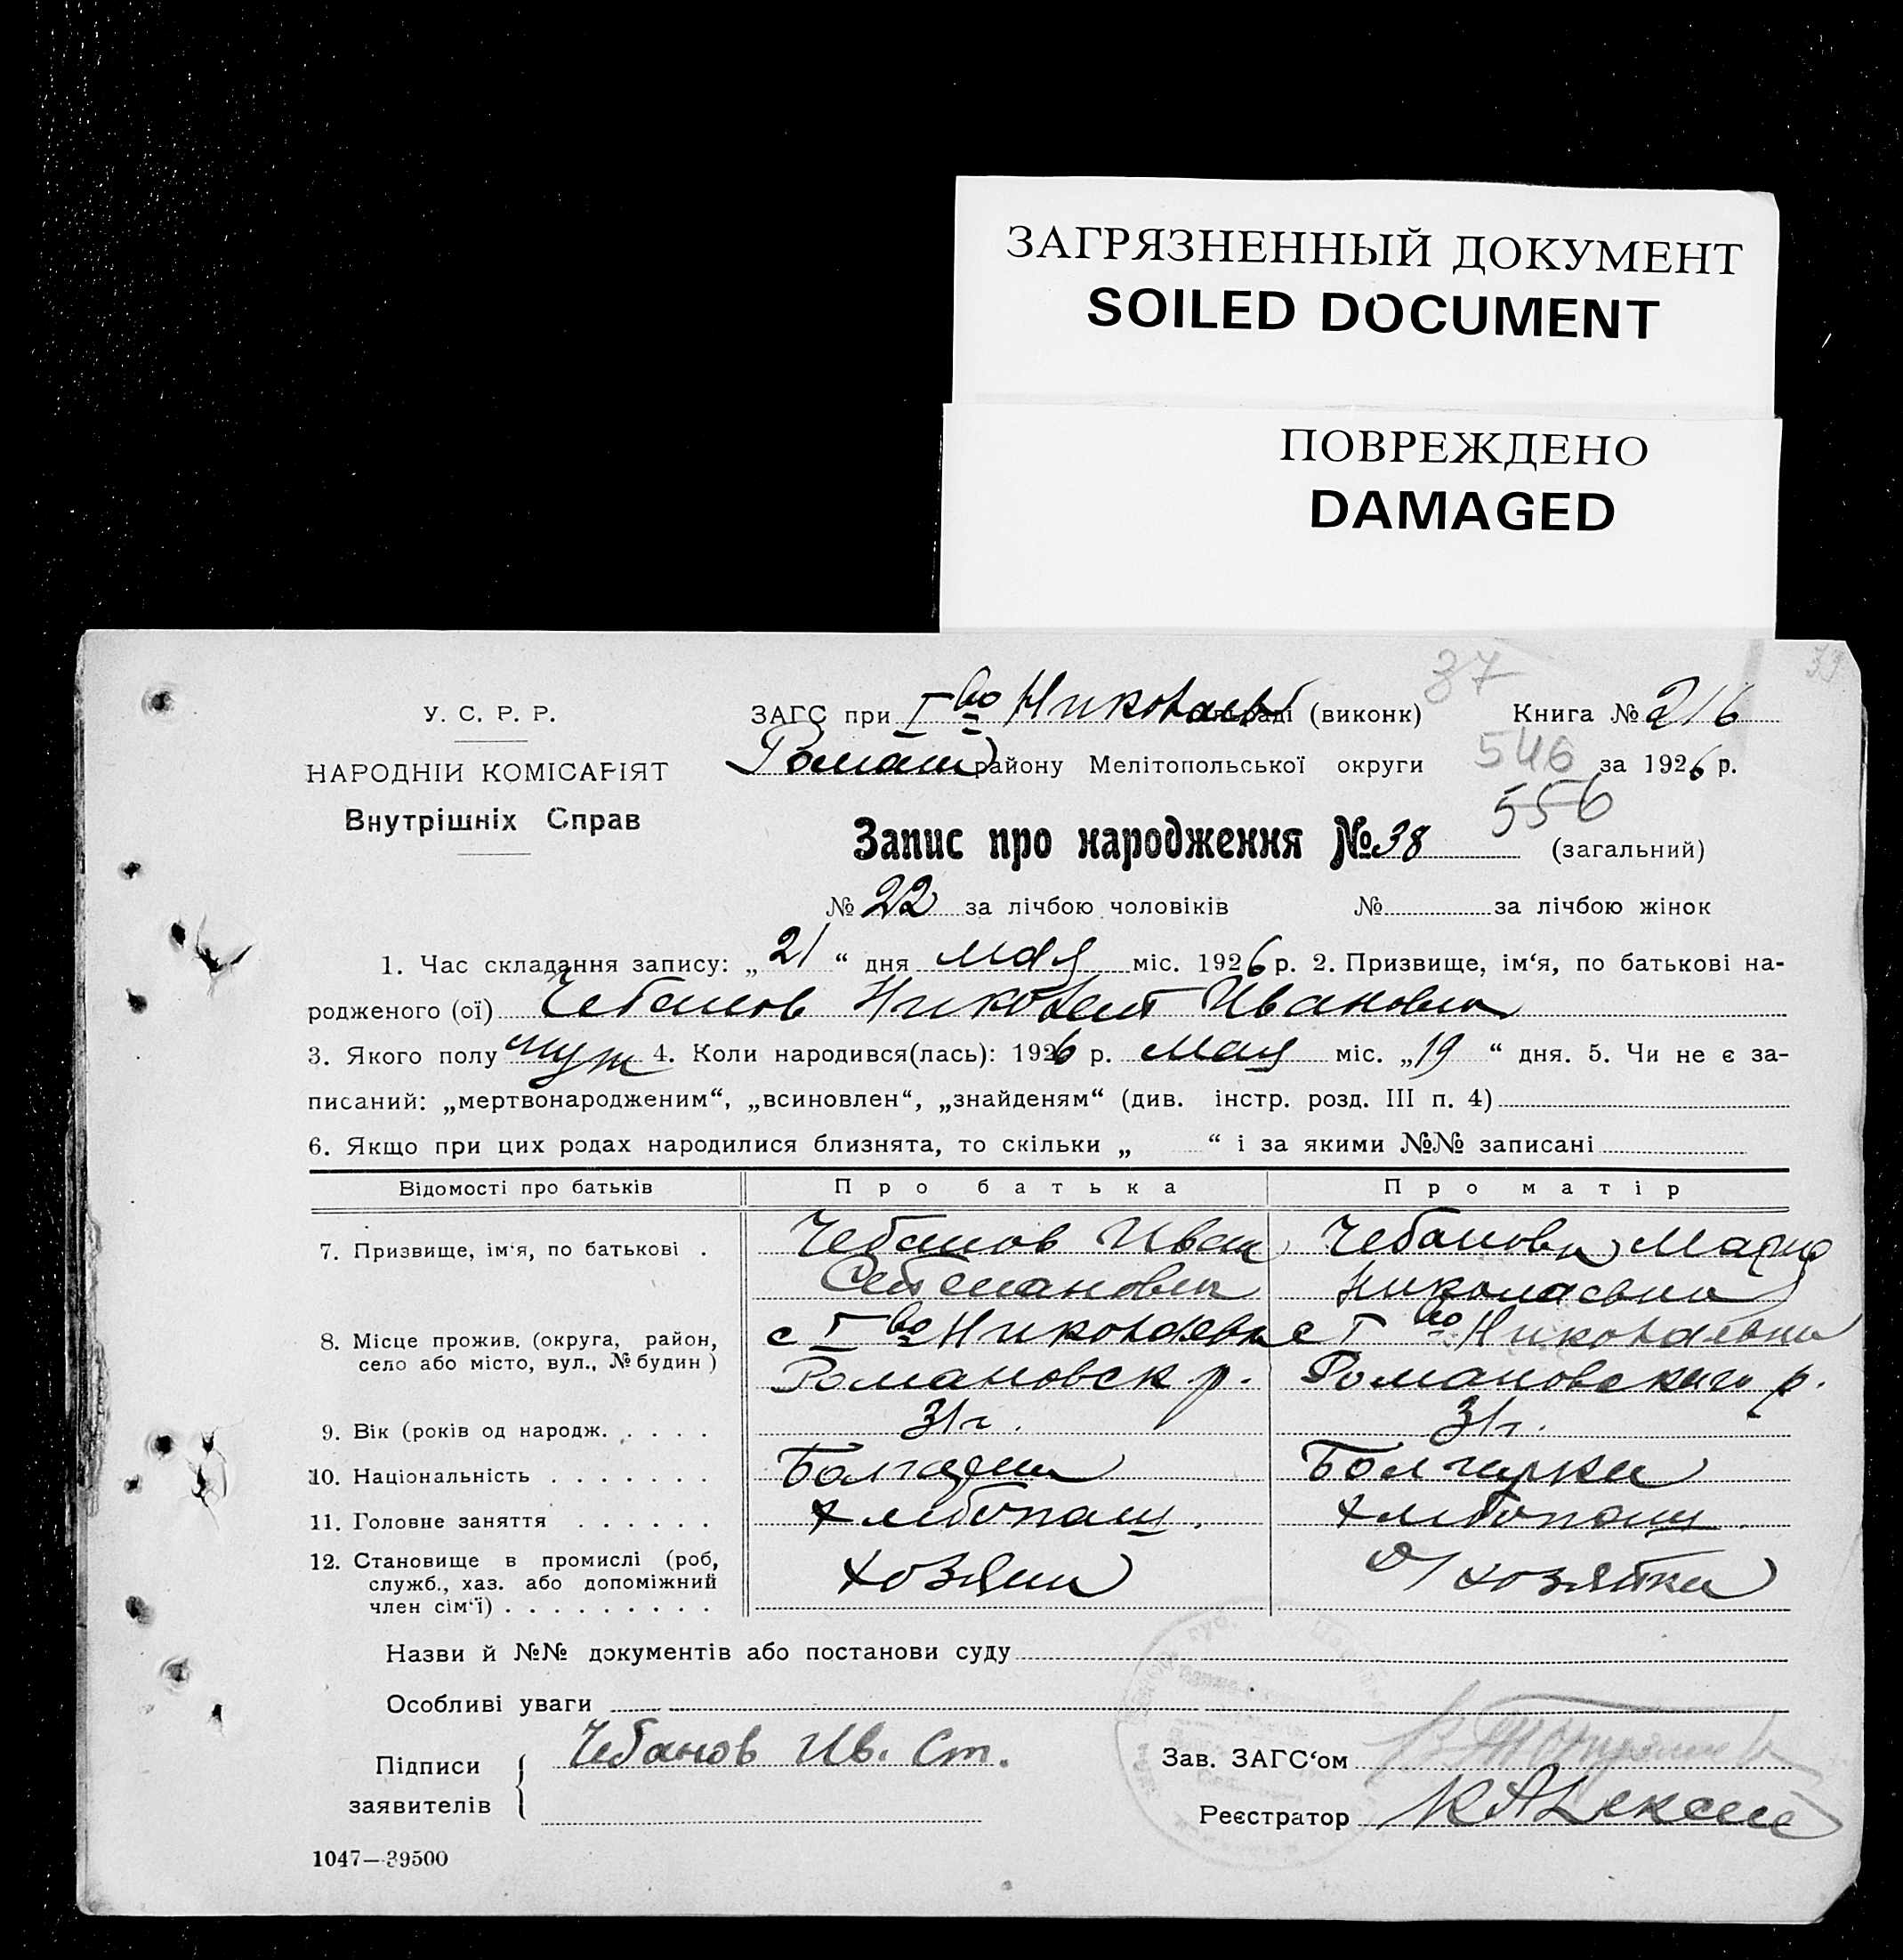 ЗАГРЯЗНЕННЫЙ ДОКУМЕНТ
SOILED DOCUMENT
ПОВРЕЖДЕНО
DAMAGED
37
39
У. С. Р. Р.
ЗАГС при I во Николаев раді (виконк) Книга № 216
НАРОДНІЙ КОМІСАРІЯТ
Роман району Мелітопольської округи 546 за 1926 р.
Внутрішніх Справ
556
Запис про народження № 38 (загальний)
№ 22 за лічбою чоловіків № за лічбою жінок
1. Час складання запису: „21“ дня мая міс. 1926 р. 2. Призвище, ім‘я, по батькові на-
родженого (ої) Чебанов Николай Иванович
3. Якого полу муж 4. Коли народився(лась): 1926 р. мая міс. „19“ дня. 5. Чи не є за-
писаний: „мертвонародженим“, „всиновлен“, „знайденям“ (див. інстр. розд. III п. 4)
6. Якщо при цих родах народилися близнята, то скільки „ “ і за якими №№ записані
Відомості про батьків Про батька Про матір
7. Призвище, ім‘я, по батькові . Чебанов Иван Чебанова Мария
Степанович Николаевна
8. Місце прожив. (округа, район, с I во Николаевка с I во Николаевки
село або місто, вул., № будин) Романовск р. Романовского р.
9. Вік (років од народж. . . . . 31 г. 31 г.
10. Національність . . . . . . . Болгарин Болгарка
11. Головне заняття . . . . . . хлибопаш. хлибопаш
12. Становище в промислі (роб, хозяин д/хозяйка
служб., хаз. або допоміжний
член сім‘ї) . . . . . . . . .
Назви й №№ документів або постанови суду
Особливі уваги
Підписи Чебанов Ив. Ст.
заявителів
Зав. ЗАГС‘ом
Реєстратор
1047—39500